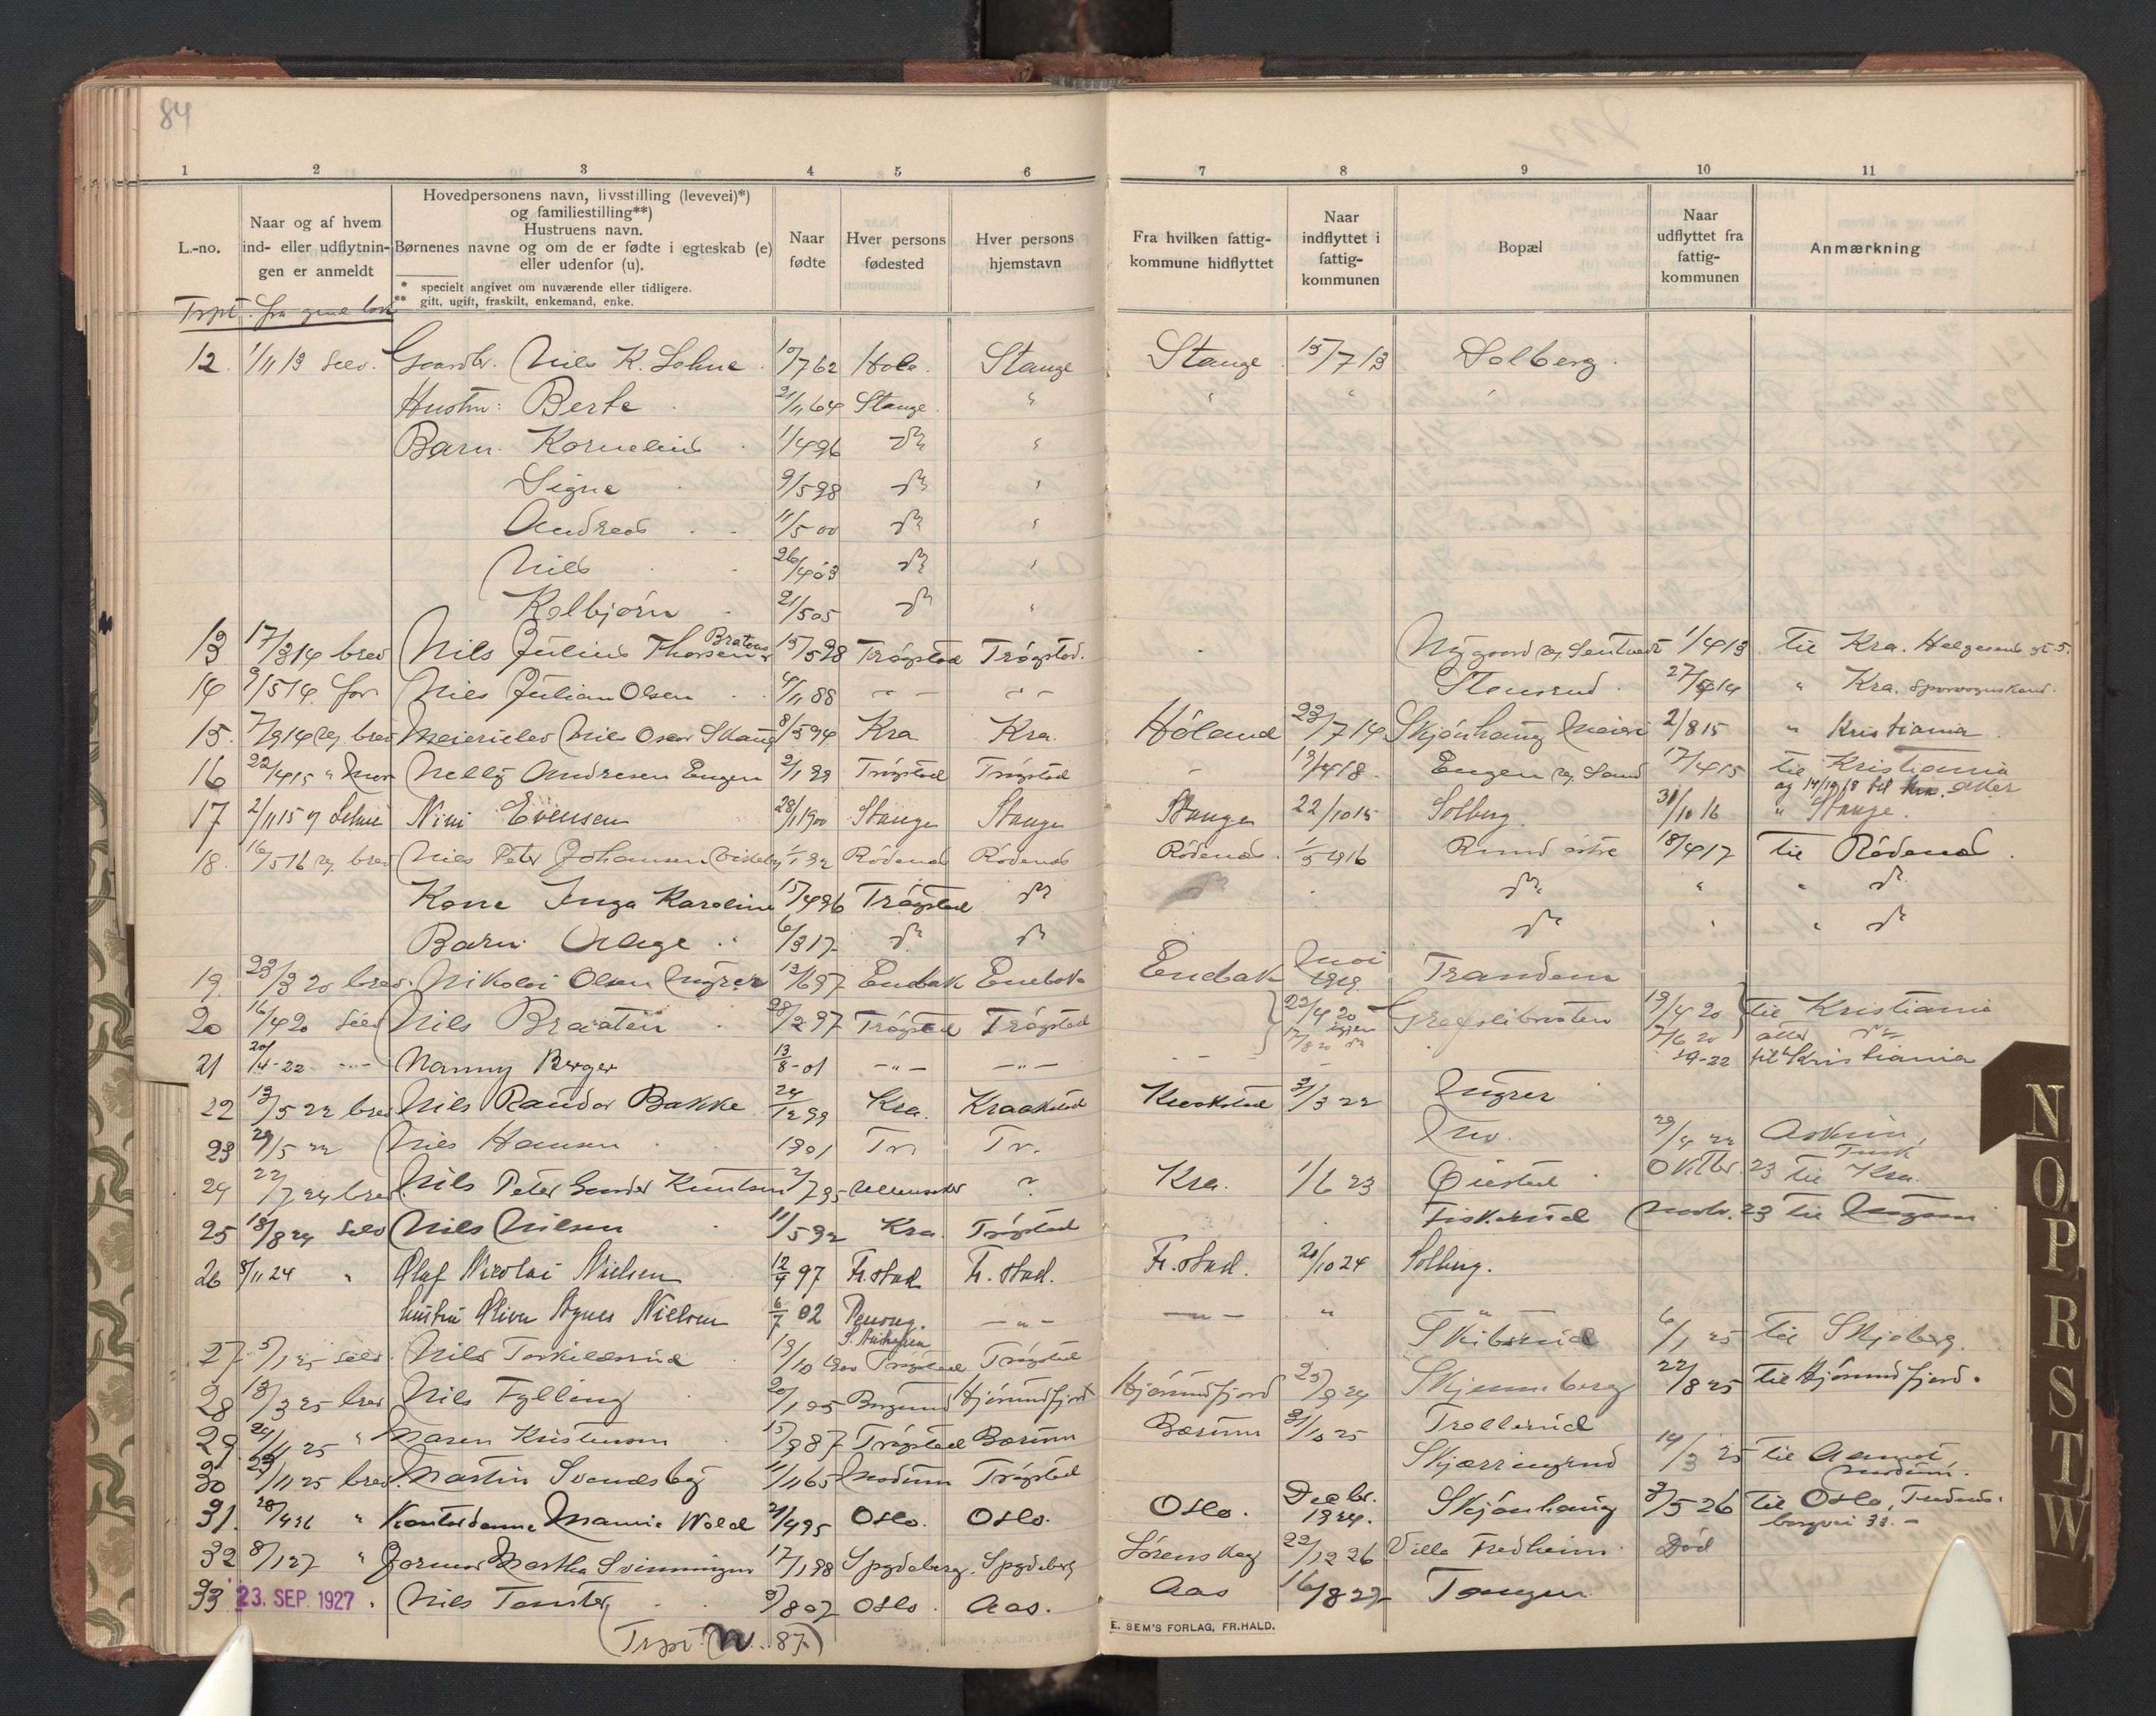 84
1 2 3 4 5 6 7 8 9 10 11
L.-no.
Naar og af hvem
ind- eller udflytnin-
gen er anmeldt
Hovedpersonens navn, livsstilling (levevei)*)
og familiestilling**)
Hustruens navn.
Børnenes navne og om de er fødte i egteskab (e)
eller udenfor (u).
* specielt angivet om nuværende eller tidligere.
** gift, ugift, fraskilt, enkemand, enke.
Naar
fødte
Hver persons
fødested
Hver persons
hjemstavn
Fra hvilken fattig-
kommune hidflyttet
Naar
indflyttet i
fattig-
kommunen
Bopæl
Naar
udflyttet fra
fattig-
kommunen
Anmærkning
Trpt. fra
12. 1/11 13 Selv. Gaardbr. Nils K. Lohne 10/7 62 Hole. Stange Stange 15/7 13 Solberg.
Hustru: Berte 21/11 64 Stange. " " " "
Barn. Kornelius 1/4 96 do "
Signe 9/5 98 do "
Andreas 11/5 00 do "
Nils 26/4 03 do "
Kolbjørn 21/5 05 do "
13 17/3 14 brev Nils Julius Thorsen Braten 15/5 98 Trøgstad Trøgstad. Nygaard 1/4 13 til Kra. Helgesens gt. 5.
14 9/5 14. far Nils Julian Olsen 4/11 88 - " - - " - Stensrud. 27/4 14 " Kra. Sporvognskond.
15. 7/9 14 eg. brev Meierielev Nils Oscar Skaug 8/5 94 Kra Kra. Høland 23/7 14 Skjønhaug Meieri 2/8 15 " Kristiania.
16 22/4 15 " Mor Nelly Andresen Engen 2/1 99 Trøgstad Trøgstad 19/4 18. Engen 17/4 15 til Kristiania
og 14/10 18 til Aker
17 2/11 15 Lohne Nini Evensen 28/1 1900 Stange Stange Stange 22/10 15 Solberg. 31/10 16 " Stange.
18. 16/5 16 eg. brev Nils Peter Johansen 1/1 92 Rødenæs Rødenæs Rødenæs. 1/5 1916 Rund østre 18/4 17 til Rødenæs.
Kone Inga Karoline 15/4 96 Trøgstad do do " " do
Barn. Aage 6/3 17 do do do " " do
19. 23/3 20 brev. Nikolai Olsen Myrer 12/6 97 Enebak Enebak Enebak Mai 1919 Trandem
20 16/4 20 Selv Nils Braaten 28/2 97 Trøgstad Trøgstad 23/4 20 Grefslibraaten 19/4 20 til Kristiania
igjen 17/8 20 do 7/6 20 atter do
21 20/4-22 Nanny Berger 13/8-01 - " - - " - 19-22 til Kristiania
22 13/5 22 brev Nils Randor Bakke 24/12 99 Kra. Kraakstad Kraakstad 3/3 22 Myrer
23 29/5 22 Nils Hansen 1901 Tr. Tr. Mo. 29/4 22 Askim,
24 22/7 24 brev. Nils Peter Gunder Knutsen 2/7 95 Ullensaker ? Kra. 1/6 23 Øiestad Oktbr. 23 til Kra.
25 18/8 24 Selv Nils Nilsen 11/5 92 Kra. Trøgstad Fiskerud Novbr. 23 til
26 8/11 24 " Olaf Nicolai Nielsen 12/9 97 Fr.stad Fr.stad. Fr.stad. 20/10 24 Solberg.
hustru Oliva Agnes Nielsen 6/7 02 - " - - " - " "
27. 5/1 25 Selv. Nils Torkildsrud 19/10 1900 Trøgstad Trøgstad Skibsrud 6/1 25 til Skjeberg.
28 13/3 25 brev Nils Fylling 20/1 05 Borgund Hjørundfjord Hjørundfjord 23/9 24 Skjennberg 22/8 25 til Hjørundfjord.
29. 24/11 25 " Maren Kristenson 15/9 87 Trøgstad Bærum Bærum 31/10 25 Trollerud
30 23/11 25 brev. Martin Svendsby 11/11 65 Modum Trøgstad Skjærringrud 14/3 25 til
Modum.
31. 28/4 26 " Kontordame Mamie Wold 21/4 95 Oslo. Oslo. Oslo. Decbr. 1924. Skjønhaug 3/5 26 til Oslo,
32 8/1 27 " Jormor Martha Svinningen 17/1 98 Spydeberg. Spydeberg Sørenskog 22/12 26 Villa Fredheim. Død
33 23. SEP. 1927. Nils Tomter 9/8 07 Oslo. Aas. Aas 16/8 27 Tangen
(Trpt. N. 87)
E. SEM'S FORLAG, FR.HALD.
N
O
P
R
S
T
W